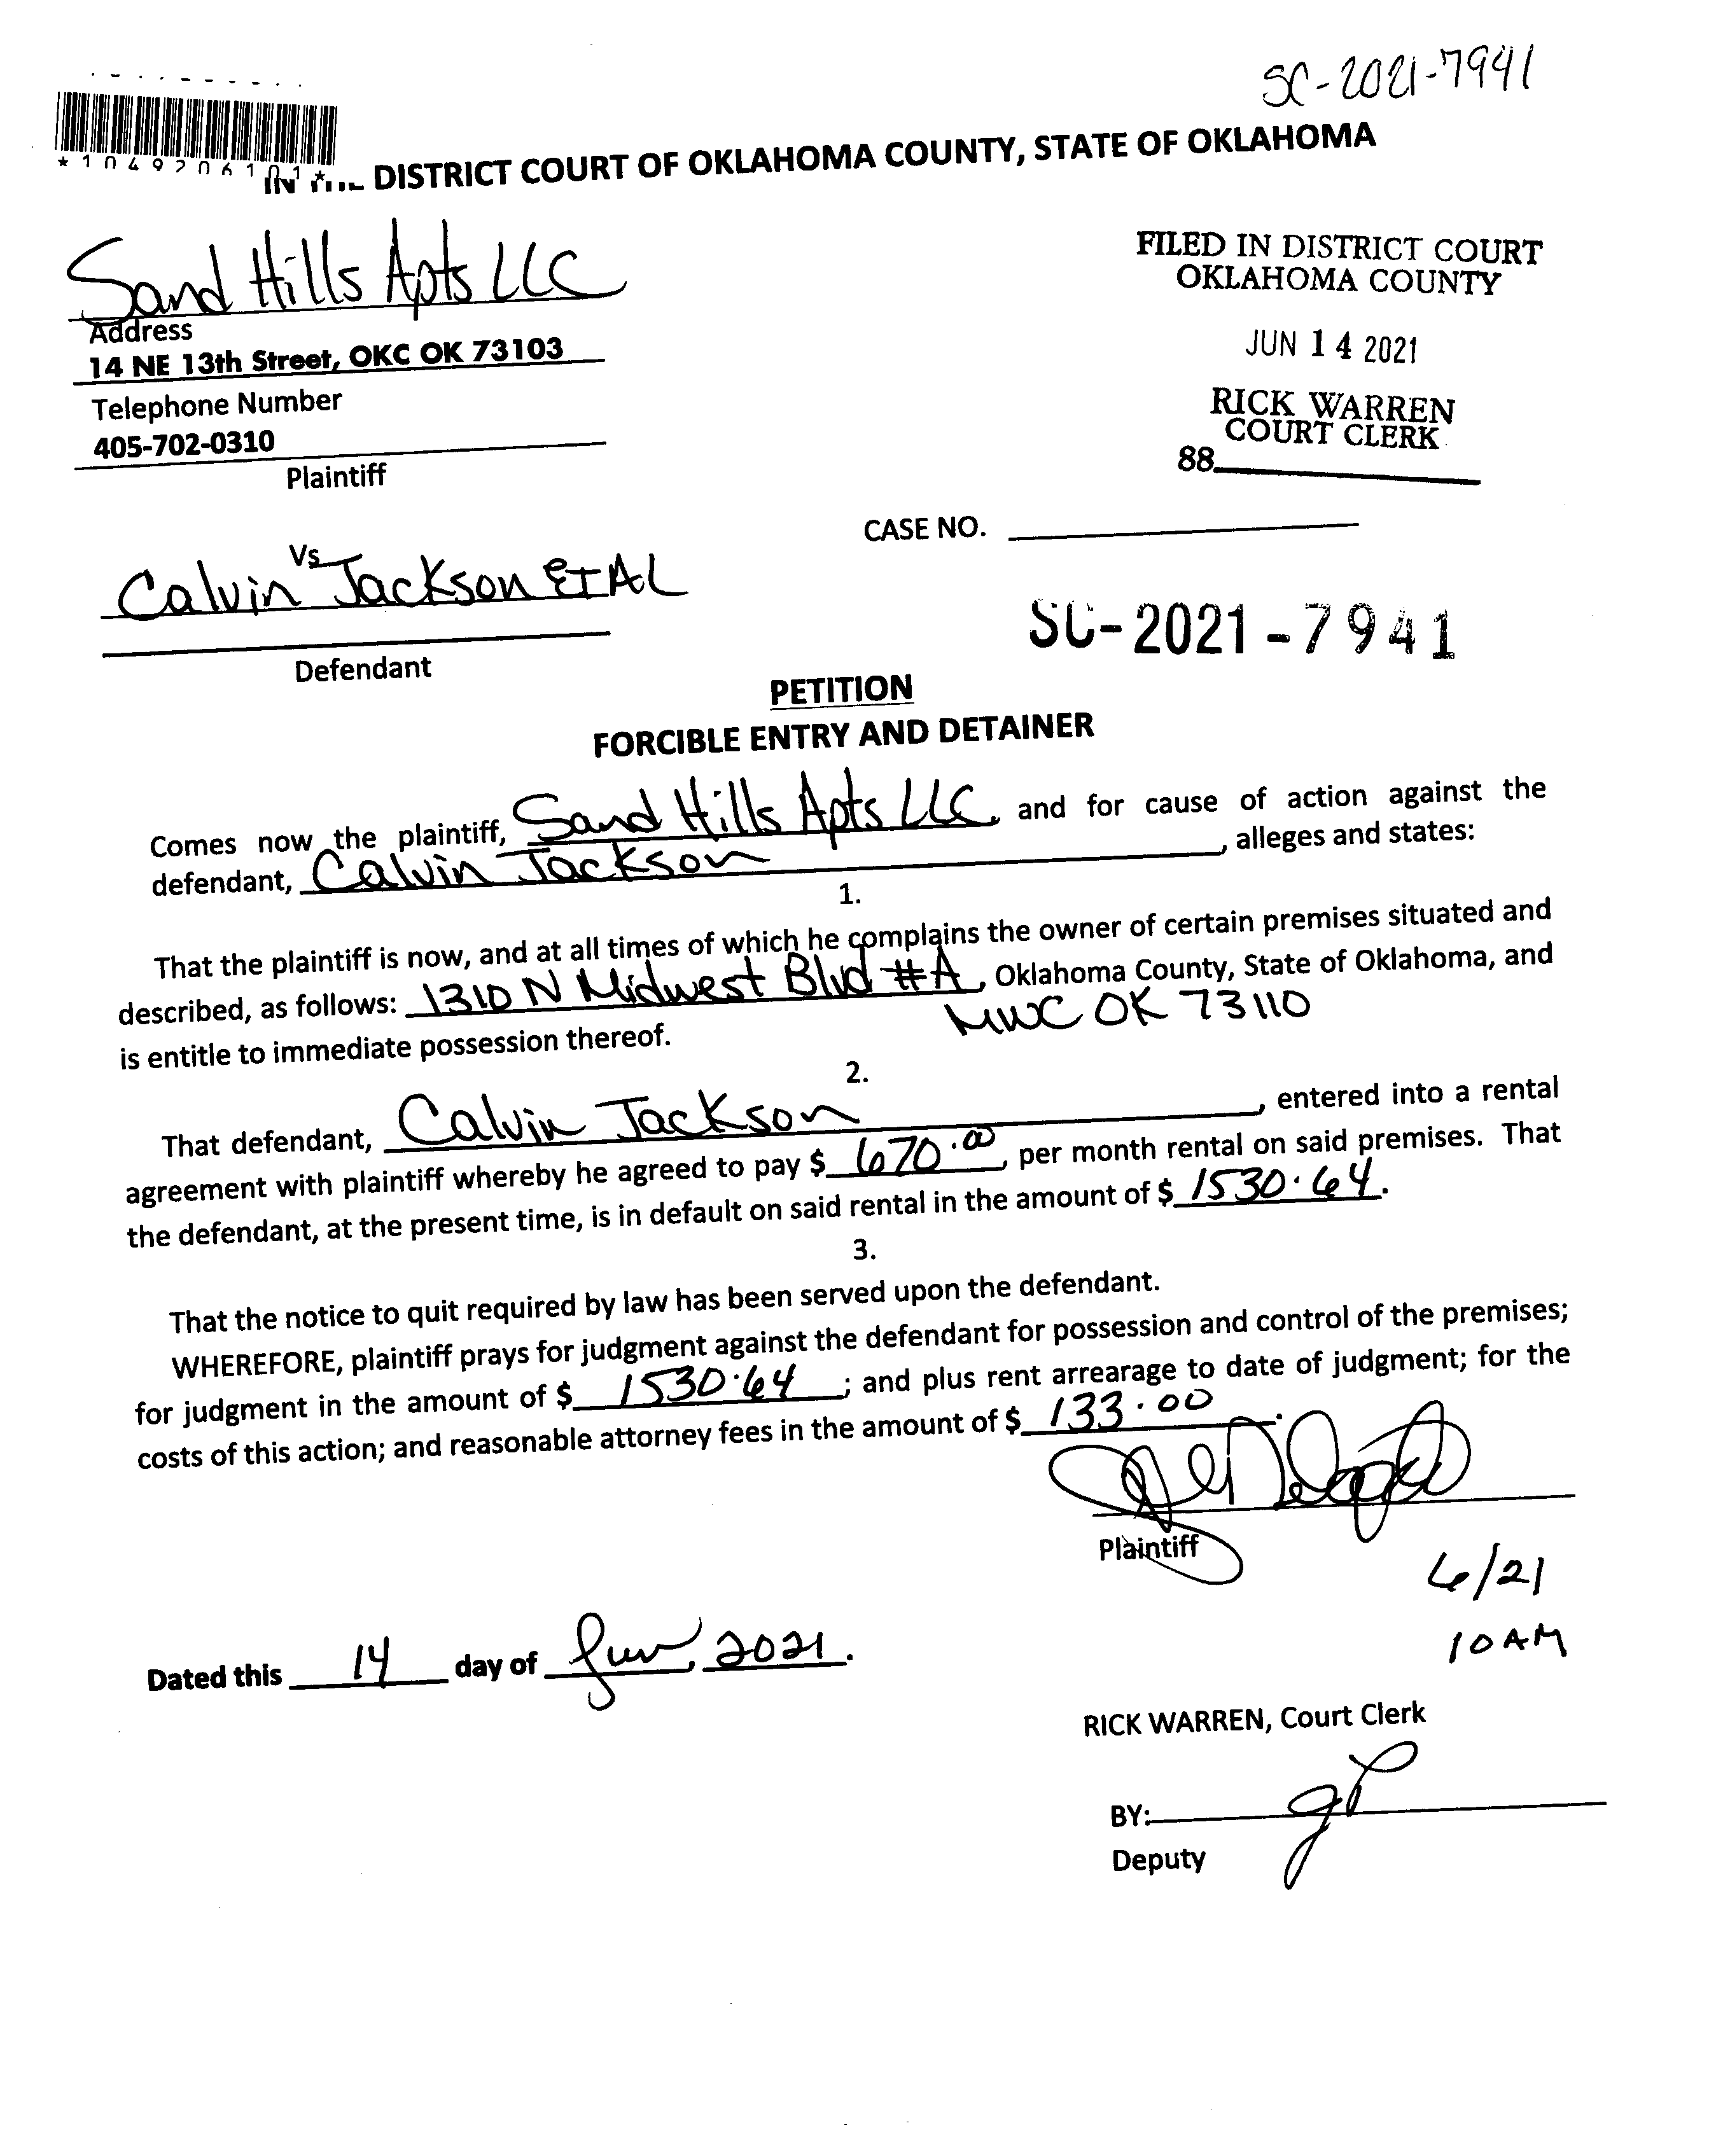 SC-2021-7941
*1049206101*
IN THE DISTRICT COURT OF OKLAHOMA COUNTY, STATE OF OKLAHOMA
Sand Hills Apts LLC
Address
14 NE 13th Street, OKC OK 73103
Telephone Number
405-702-0310
Plaintiff
FILED IN DISTRICT COURT
OKLAHOMA COUNTY
JUN 14 2021
RICK WARREN
COURT CLERK
88
CASE NO.
Vs
Calvin Jackson ET AL
SC-2021-7941
Defendant
PETITION
FORCIBLE ENTRY AND DETAINER
Comes now the plaintiff, Sand Hills Apts LLC, and for cause of action against the
defendant, Calvin Jackson, alleges and states:
1.
That the plaintiff is now, and at all times of which he complains the owner of certain premises situated and
described, as follows: 1310 N Midwest Blvd #A, Oklahoma County, State of Oklahoma, and
MWC OK 73110
is entitle to immediate possession thereof.
2.
That defendant, Calvin Jackson, entered into a rental
agreement with plaintiff whereby he agreed to pay $ 670.00, per month rental on said premises. That
the defendant, at the present time, is in default on said rental in the amount of $ 1530.64.
3.
That the notice to quit required by law has been served upon the defendant.
WHEREFORE, plaintiff prays for judgment against the defendant for possession and control of the premises;
for judgment in the amount of $ 1530.64; and plus rent arrearage to date of judgment; for the
costs of this action; and reasonable attorney fees in the amount of $ 133.00.
Plaintiff
6/21
10 AM
Dated this 14 day of Jun, 2021.
RICK WARREN, Court Clerk
BY:
Deputy